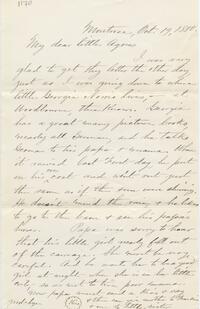 1880
Montrose, Oct. 19, 1880.
My dear little Agnes
I was very
glad to get thy letter the other day
just as I was going down to where
little Georgie Norris lives, - at
Woodbourne, thee knows. Georgie
has a great many picture books,
nearly all German, and he talks
German to his papa & mama. When
it rained last First day he put
on his coat and went out just
the same as if the sun were shining.
He doesn't mind the rain, & he likes
to go to the barn & see his papa's
horse. Papa was sorry to hear
that his little girl nearly fell out
of the carriage. She must be very
careful. And he wants her to be a good
girl at night when she is in her little
crib, so as not to tire poor mama.